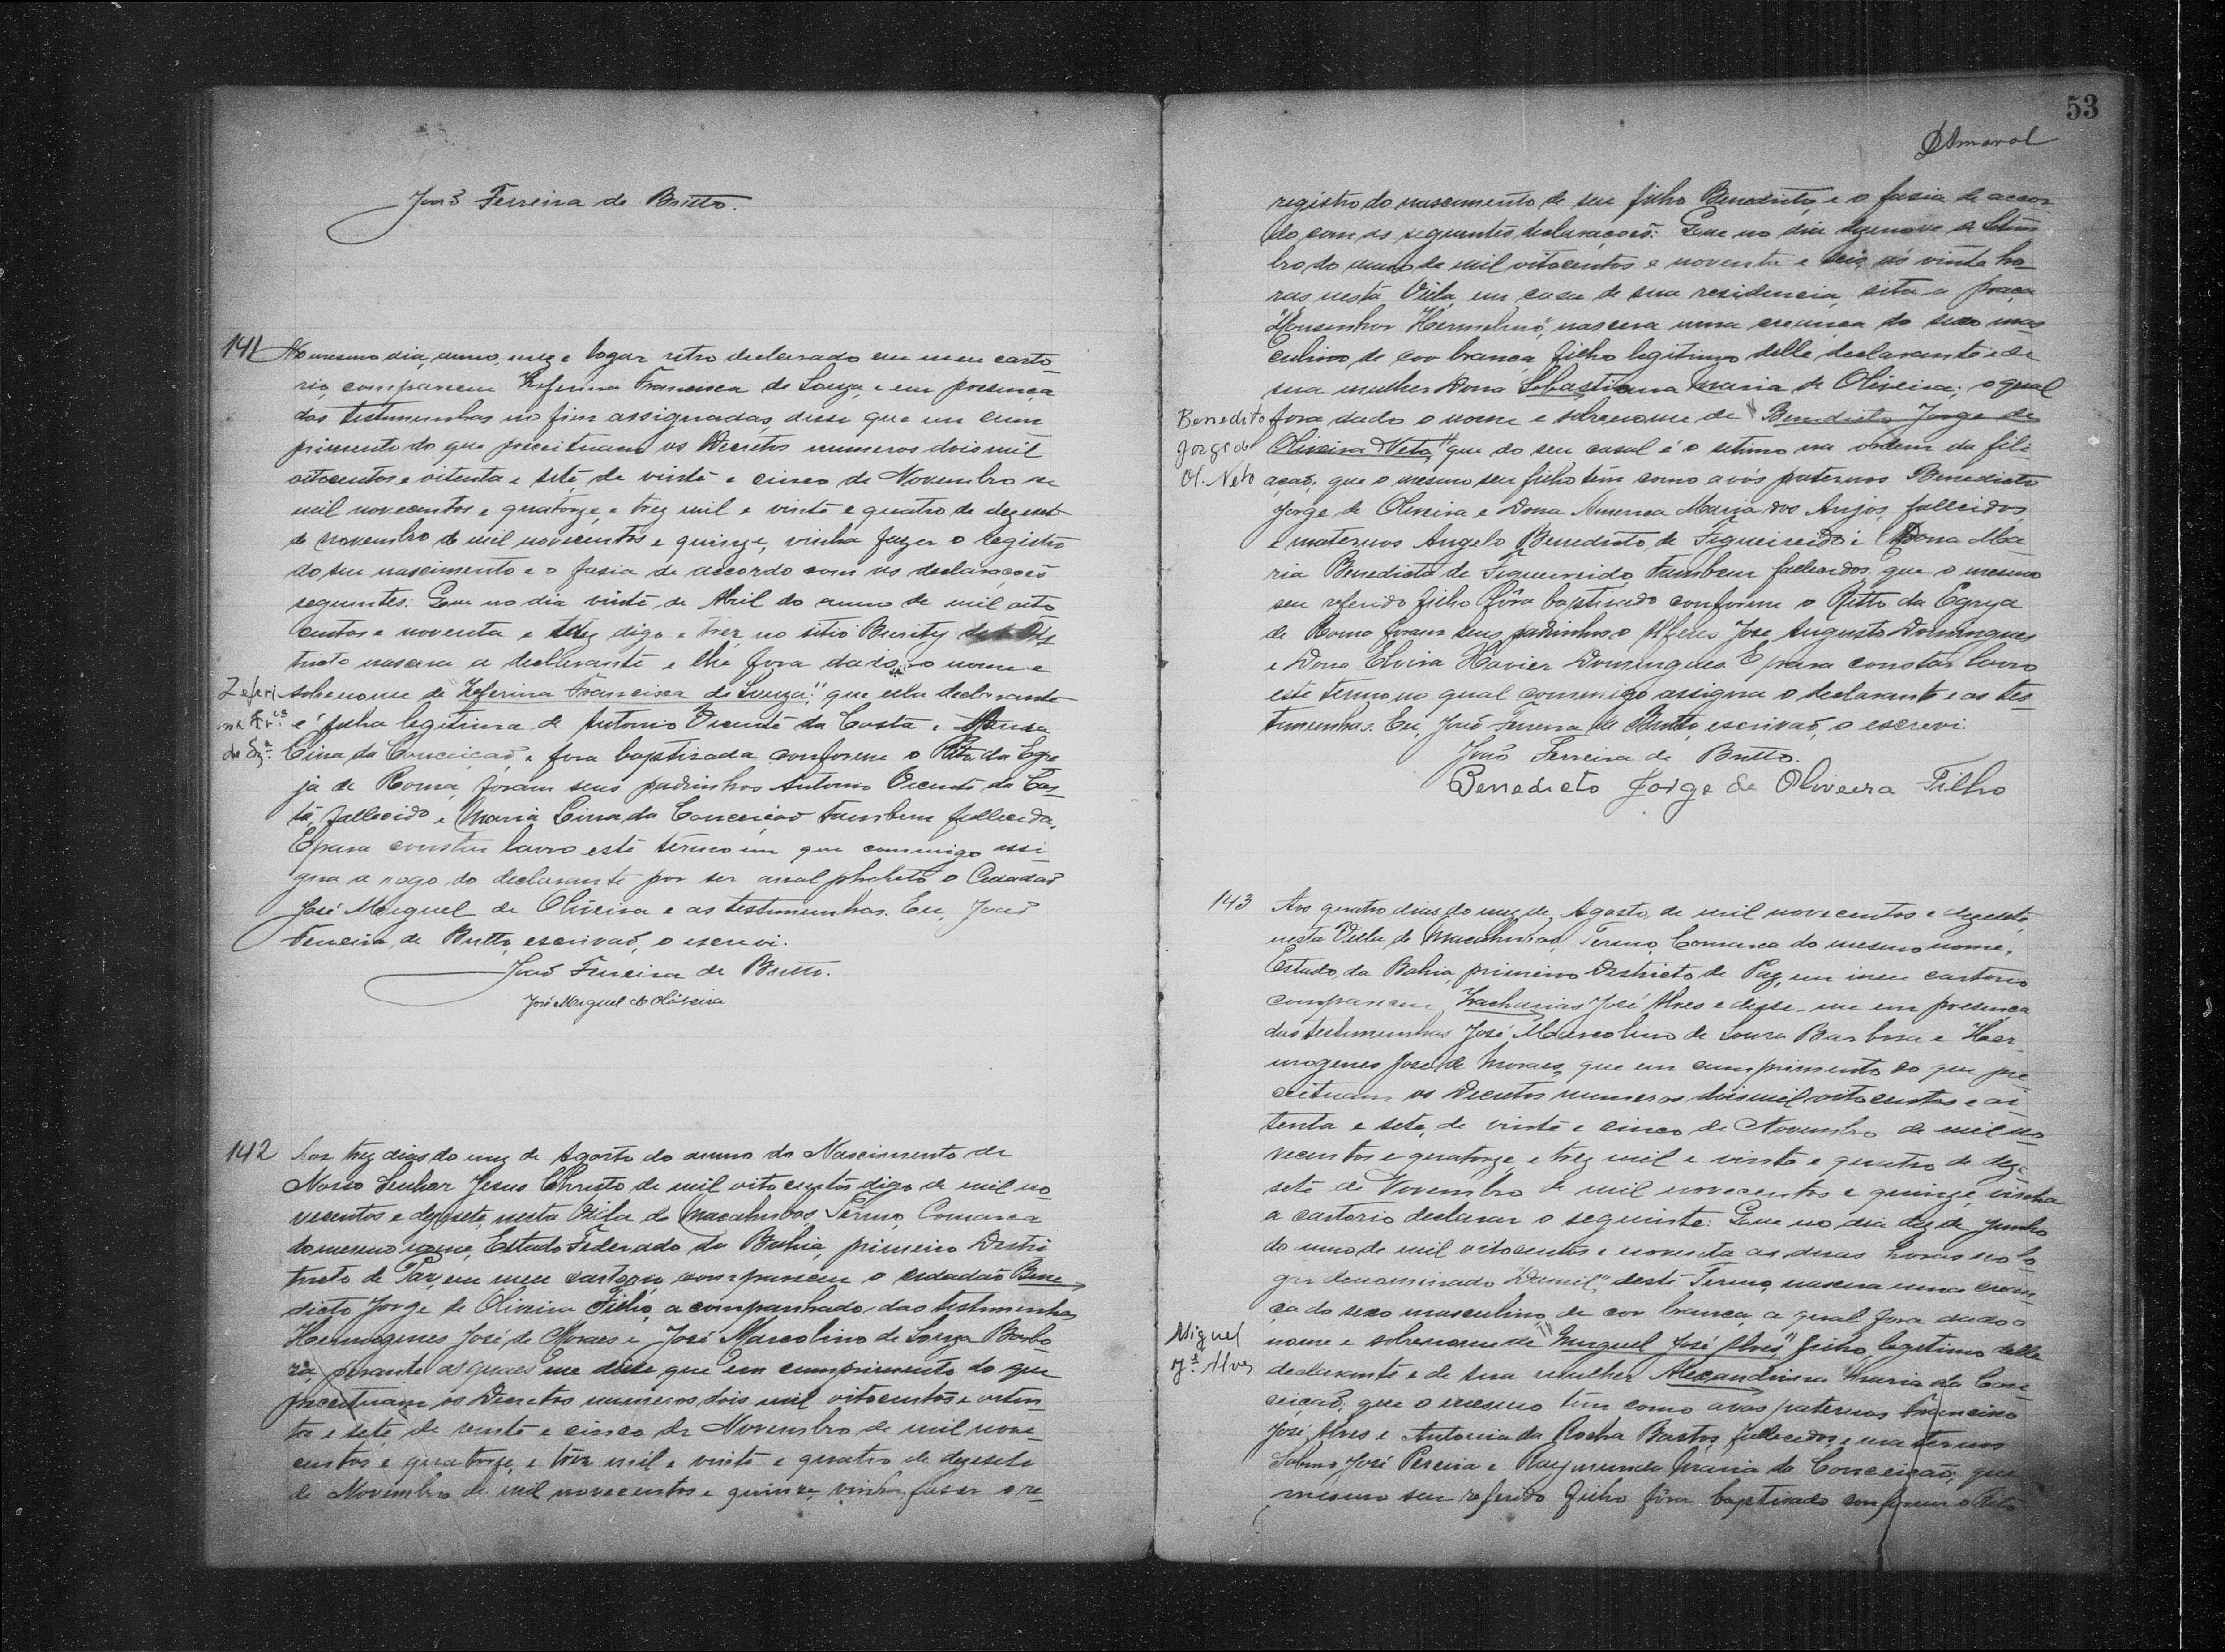 João Ferreira de Britto.
141 No mesmo dia, anno, mez e logar retro declarado em meu carto
rio, compareceu Zeferina Francisca de Souza, e em presença
das testemunhas no fim assignadas, disse que em cum
primento do que preceituam os Decretos numeros dois mil
oitocentos e oitenta e sete, de vinte e cinco de Novembro de
mil novecentos e quatorze, e trez mil e vinte e quatro de dezesete
de novembro de mil novecentos e quinze, vinha fazer o registro
do seu nascimento e o fasia de accordo com as declarações
seguintes: Que no dia vinte de Abril do anno de mil oito
centos e noventa e digo e trez no sitio Burity
tricto nascera a declarante e lhe fora dado o nome e
sobrenome de "Zeferina Francisca de Souza;" que ella declarante
Zeferi
na Fr.ca
de Sz.a
é filha legitima de Antonio Vicente da Costa e Maria
Lina da Conceição, e fora baptisada conforme o Rito da Egre
ja de Roma, foram seus padrinhos Antonio Vicente da Cos
ta, fallecido e Maria Lina da Conceição tambem fallecida.
E para constar lavro este termo em que commigo assi
gna a rogo do declarante por ser analphabeto o Cidadão
José Miguel de Oliveira e as testemunhas. Eu, João
Ferreira de Britto, escrivão, o escrevi.
João Ferreira de Britto.
José Miguel de Oliveira
142 Aos trez dias do mez de Agosto do anno do Nascimento de
Nosso Senhor Jesus Christo de mil oitocentos digo de mil no
vecentos e dezesete, nesta Villa de Macahubas, Termo, Comarca
do mesmo nome, Estado Federado da Bahia, primeiro Destri
tricto de Paz, em meu cartorio compareceu o cidadão Bene
dicto Jorge de Oliveira Filho, acompanhado das testemunhas
Hermogenes José de Moraes e José Marcolino de Souza Barbo
za, perante as quaes me disse que em cumprimento do que
preceituam os Decretos numeros dois mil oitocentos e oiten
ta e sete de vinte e cinco de Novembro de mil nove
centos e quatorze, e trez mil e vinte e quatro de dezesete
de Novembro de mil novecentos e quinze, vinha fasar o re
53
DAmaral
registro do nascimento de seu filho Benedicto, e o fasia de accor
do com as seguintes declarações: Que no dia dezenove de Setem
bro do anno de mil oitocentos e noventa e seis, ás vinte ho
ras nesta Villa, em casa de sua residencia, sita a praça
"Monsenhor Hermelino", nascera uma creança do sexo mas
culino de cor branca, filho legitimo delle declarante e de
sua mulher Dona Sebastiana Maria de Oliveira; o qual
fora dado o nome e sobrenome de "Benedicto Jorge de
Benedito
Jorge de
Ol. Neto
Oliveira Neto," que do seu casal é o setimo na ordem da fili
ação; que o mesmo seu filho tem como avós paternos Benedicto
Jorge de Oliveira e Dona America Maria dos Anjos, fallecidos,
e maternos Angelo Benedicto de Figueireido e Dona Ma
ria Benedicta de Figueireido, tambem fallecidos; que o mesmo
seu referido filho fôra baptisado conforme o Ritto da Egreja
de Roma foram seus padrinhos o Alferes José Augusto Domingues
e Dona Elvira Xavier Domingues. E para constar lavro
este termo no qual commigo assigna o declarante e as tes
temunhas. Eu, João Ferreira de Britto, escrivão, o escrevi.
João Ferreira de Britto.
Benedicto Jorge de Oliveira Filho
143 Aos quatro dias do mez de Agosto de mil novecentos e dezesete,
nesta Villa de Macahubas, Termo, Comarca do mesmo nome,
Estado da Bahia, primeiro Destricto de Paz, em meu cartorio
compareceu Zacharias José Alves e disse-me em presença
das testemunhas José Marcolino de Souza Barbosa e Her
mogenes José de Moraes, que em cumprimento do que pre
ceituam os Decretos numeros dois mil oitocentos e oi
tenta e sete, de vinte e cinco de Novembro de mil no
vecentos e quatorze, e trez mil e vinte e quatro de deze
sete de Novembro de mil novecentos e quinze, vinha
a cartorio declarar o seguinte: Que no dia dez de Junho
do anno de mil oitocentos e noventa as duas horas no lo
gar denominado "Damil," deste Termo, nascera uma crean
ça do sexo masculino, de cor branca, a qual fora dado o
nome e sobrenome de "Miguel José Alves" filho legitimo delle
Miguel
J.é Alves
declarante e de sua mulher Alexandrina Maria da Con
ceição; que o mesmo tem como avós paternos Francisco
José Alves e Antonia da Rocha Bastos, fallecidos, e maternos
Sabino José Pereira e Raymunda Maria da Conceição; que
mesmo seu referido filho fôra baptisado conforme o Rito